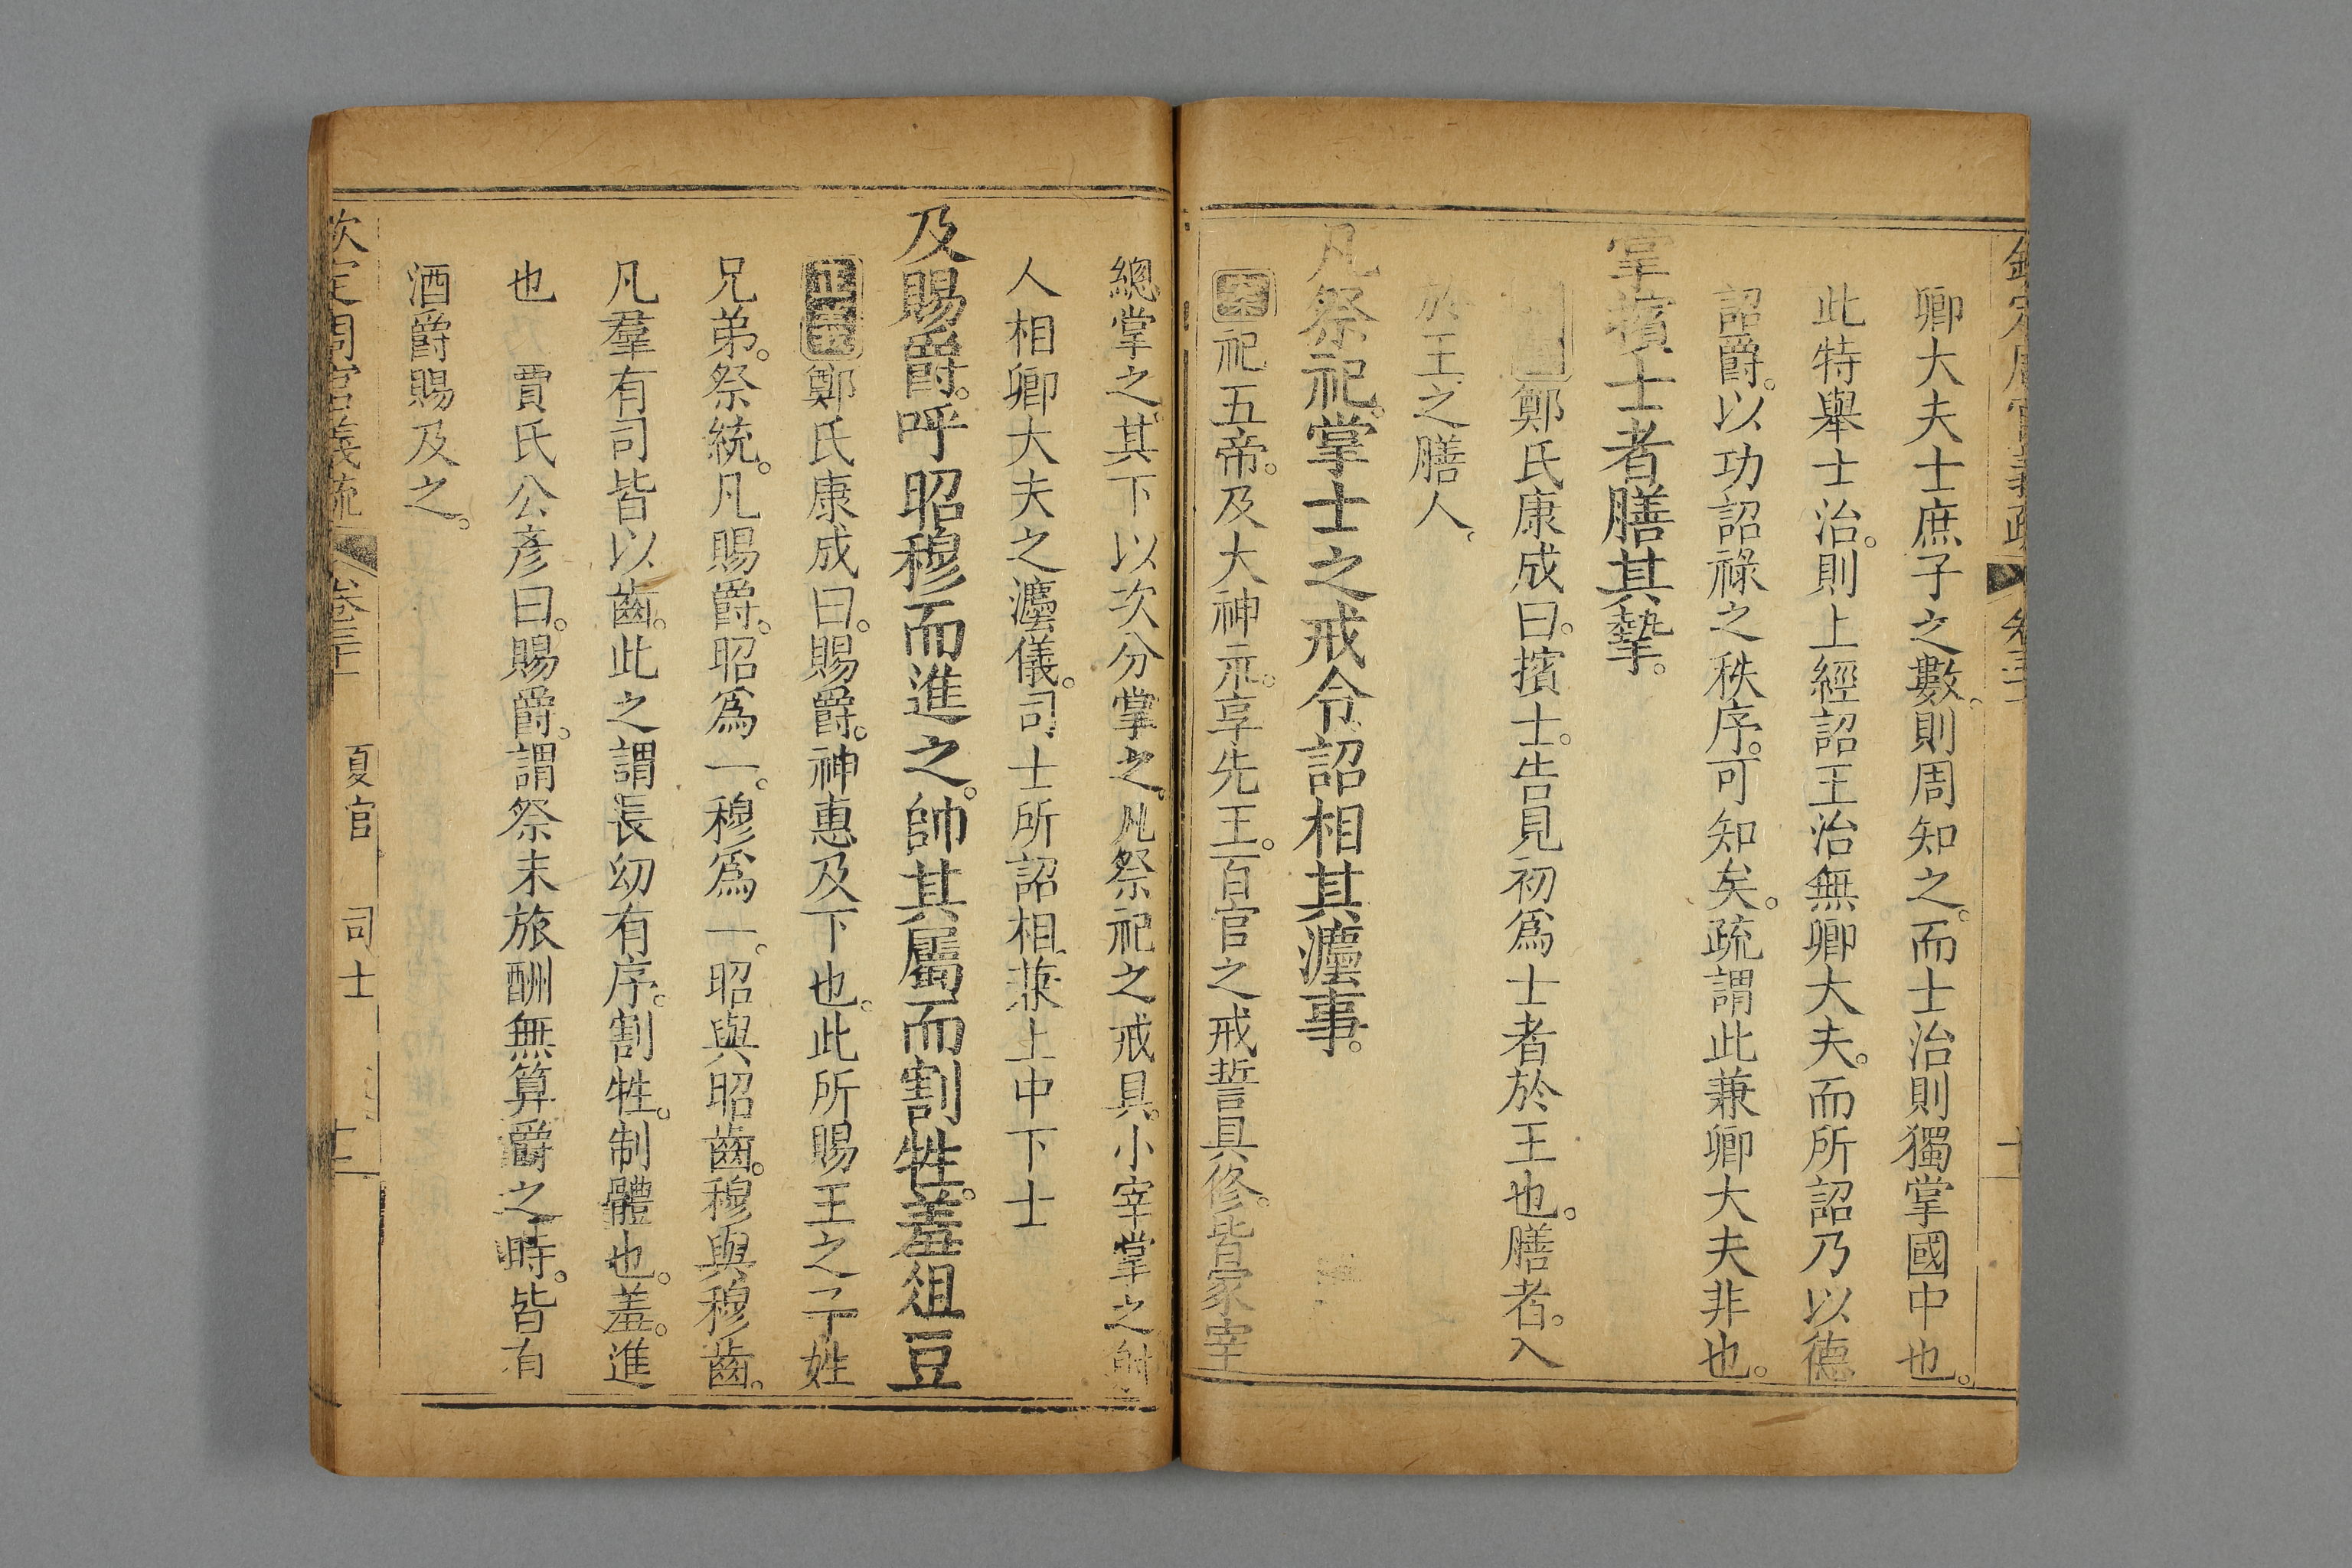 欽定周官義疏 卷三十
卿大夫士庶子之數。則周知之。而士治則獨掌國中也。
此特舉士治。則上經詔王治無卿大夫。而所詔乃以德
詔爵。以功詔祿之秩序。可知矣。疏謂此兼卿大夫非也。
掌擯士者膳其摯。
鄭氏康成曰。擯士。告見初爲士者於王也。膳者。入
於王之膳人。
凡祭祀。掌士之戒令。詔相其灋事。
祀五帝。及大神示。享先王。百官之戒誓具修。皆冢宰
總掌之。其下以次分掌之。凡祭祀之戒具。小宰掌之。射
人相卿大夫之灋儀。司士所詔相。兼上中下士
及賜爵。呼昭穆而進之。帥其屬而割牲。羞俎豆
正義鄭氏康成曰。賜爵。神惠及下也。此所賜王之子姓
兄弟。祭統。凡賜爵。昭爲一。穆爲一。昭與昭齒。穆與穆齒。
凡羣有司皆以齒。此之謂長幼有序。割牲。制體也。羞。進
也 賈氏公彥曰。賜爵。謂祭末旅酬無算爵之時。皆有
酒爵賜及之。
欽定周官義疏 卷三十 夏官 司士